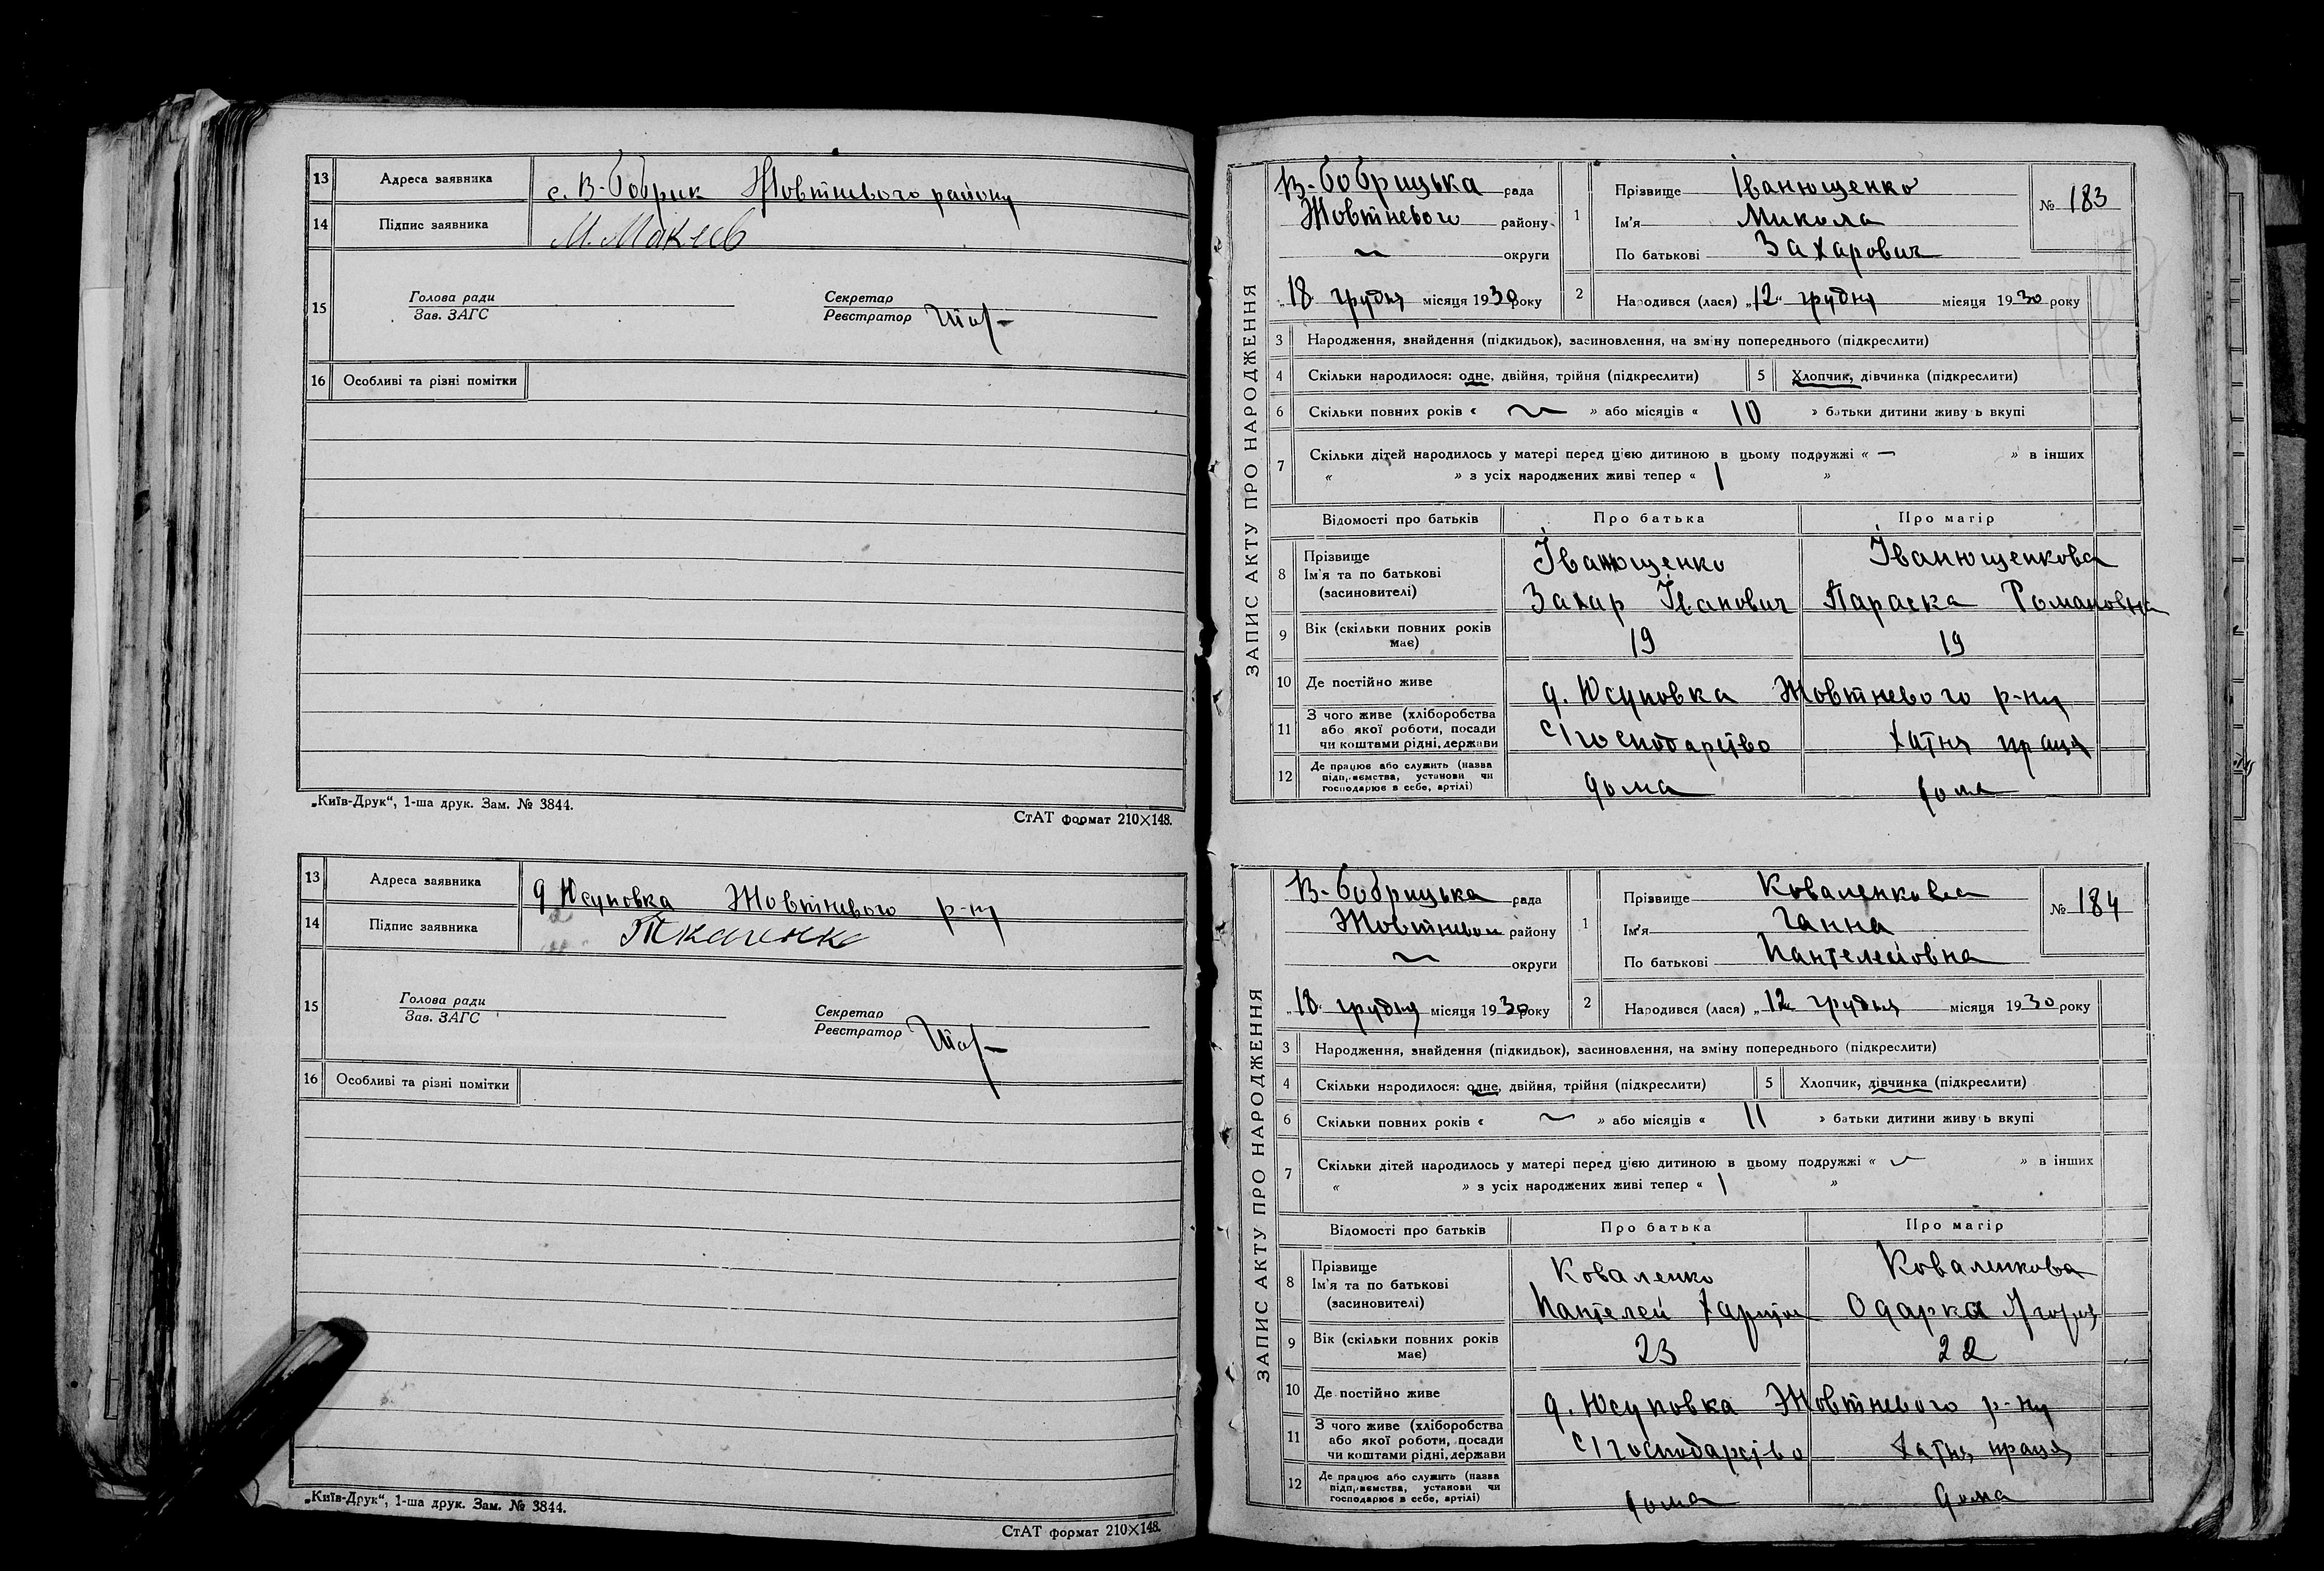 13 Адреса заявника с. В-Бобрик Жовтневого району
14 Підпис заявника М. Макеєв
15 Голова ради
Зав. ЗАГС
Секретар
Реєстратор
16 Особливі та різні помітки
„Київ-Друк“, 1-ша друк. Зам. № 3844.
СтАТ формат 210×148.
13 Адреса заявника д Юсуповка Жовтневого р-ну
14 Підпис заявника Ткаченко
15 Голова ради
Зав. ЗАГС
Секретар
Реєстратор
16 Особливі та різні помітки
„Київ-Друк“, 1-ша друк. Зам. № 3844.
СтАТ формат 210×148.
ЗАПИС АКТУ ПРО НАРОДЖЕННЯ
В-бобрицька рада
Жовтневого району
~ округи
„18“ грудня місяця 1930 року
1 Прізвище Іванющенко
Ім'я Микола
По батькові Захарович
№ 183
2 Народився (лася) „12“ грудня місяця 1930 року
3 Народження, знайдення (підкидьок), засиновлення, на зміну попереднього (підкреслити)
4 Скільки народилося: одне, двійня, трійня (підкреслити) 5 Хлопчик, дівчинка (підкреслити)
6 Скільки повних років « ~ » або місяців « 10 » батьки дитини живуть вкупі
7 Скільки дітей народилось у матері перед цією дитиною в цьому подружжі « — » в інших
« » з усіх народжених живі тепер « 1 »
Відомості про батьків Про батька Про матір
8 Прізвище Іванющенко Іванющенкова
Ім'я та по батькові
(засиновителі) Захар Іванович Параска Романовна
9 Вік (скільки повних років має) 19 19
10 Де постійно живе д. Юсуповка Жовтневого р-ну
11 З чого живе (хліборобства
або якої роботи, посади
чи коштами рідні, держави С/господарство хатня праця
12 Де працює або служить (назва
підприємства, установи чи
господарює в себе, артілі) дома дома
ЗАПИС АКТУ ПРО НАРОДЖЕННЯ
В-бобрицька рада
Жовтневого району
~ округи
„18“ грудня місяця 1930 року
1 Прізвище Коваленкова
Ім'я Ганна
По батькові Пантелеїовна
№ 184
2 Народився (лася) „12“ грудня місяця 1930 року
3 Народження, знайдення (підкидьок), засиновлення, на зміну попереднього (підкреслити)
4 Скільки народилося: одне, двійня, трійня (підкреслити) 5 Хлопчик, дівчинка (підкреслити)
6 Скільки повних років « ~ » або місяців « 11 » батьки дитини живуть вкупі
7 Скільки дітей народилось у матері перед цією дитиною в цьому подружжі « ~ » в інших
« » з усіх народжених живі тепер « 1 »
Відомості про батьків Про батька Про матір
8 Прізвище Коваленко Коваленкова
Ім'я та по батькові
(засиновителі) Пантелей Одарка
9 Вік (скільки повних років має) 23 22
10 Де постійно живе д. Юсуповка Жовтневого р-ну
11 З чого живе (хліборобства
або якої роботи, посади
чи коштами рідні, держави С/господарство хатня праця
12 Де працює або служить (назва
підприємства, установи чи
господарює в себе, артілі) дома дома